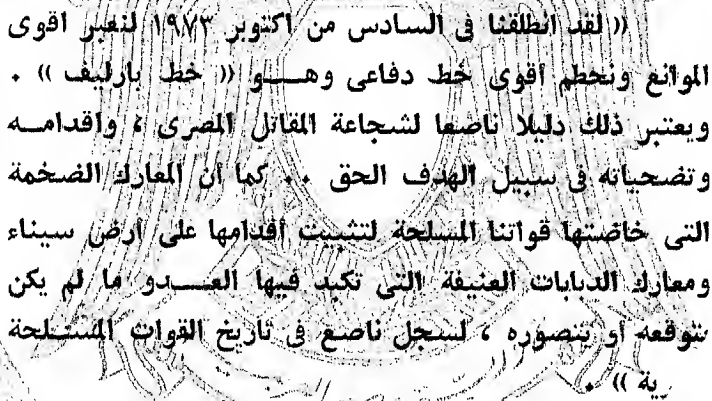 (( لقد انطلقنا فى السادس من اكتوبر ١٩٧٣ لنعبر اقوى
الموانع ونحطم أقوى خط دفاعى وهـــو (( خط بارليف )) .
ويعتبر ذلك دليلا ناصعا لشجاعة المقاتل المصرى ، واقدامــه
وتضحياته فى سبيل الهدف الحق .. كما أن المعارك الضخمة
التى خاضتها قواتنا المسلحة لتثبيت أقدامها على أرض سيناء
ومعارك الدبابات العنيفة التى تكبد فيها العـــدو ما لم يكن
يتوقعه أو يتصوره ، لسجل ناصع فى تاريخ القوات المســلحة
رية )) .